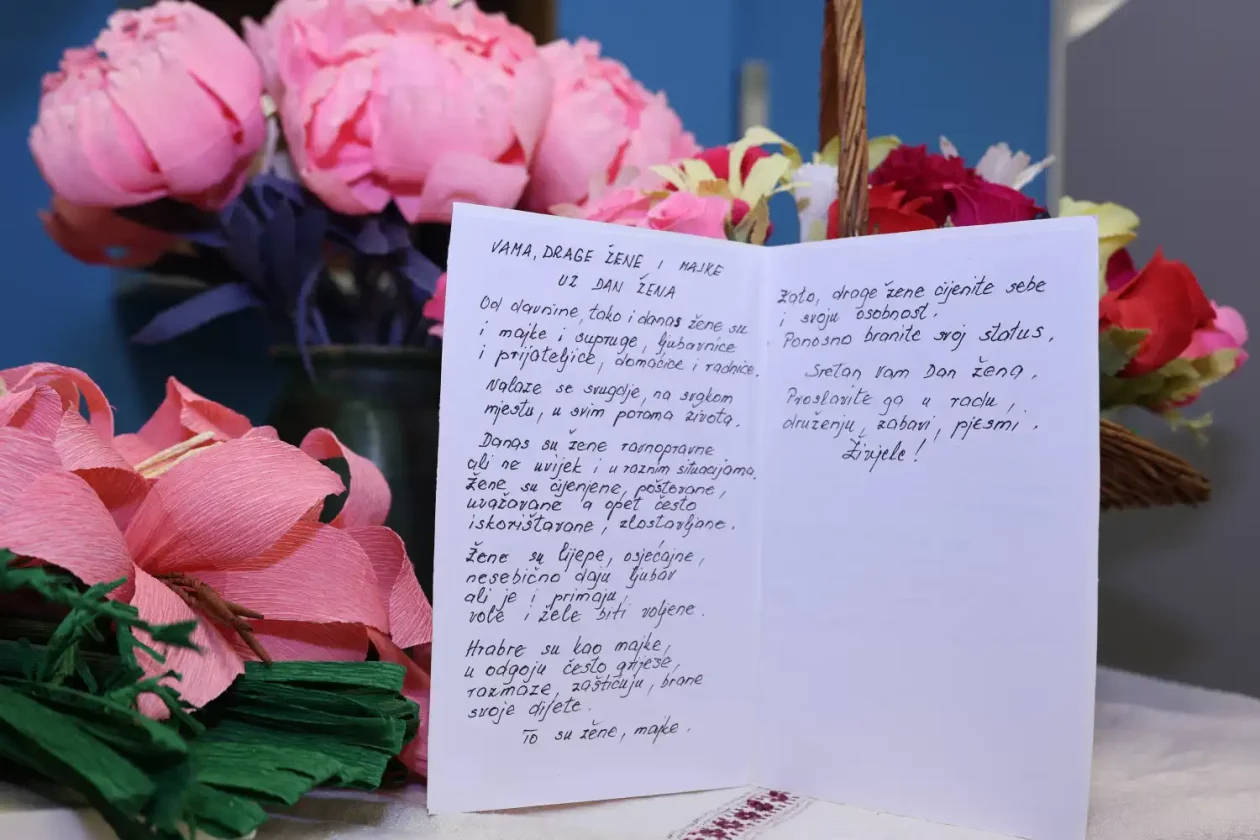 VAMA, DRAGE ŽENE I MAJKE
UZ DAN ŽENA
Od davnine, tako i danas žene su
i majke i supruge, ljubavnice
i prijateljice, domaćice i radnice.
Nalaze se svugdje, na svakom
mjestu, u svim porama života.
Danas su žene ravnopravne
ali ne uvijek i u raznim situacijama.
Žene su cijenjene, poštovane,
uvažavane a opet često
iskorištavane, zlostavljane.
Žene su lijepe, osjećajne,
nesebično daju ljubav
ali je i primaju,
vole i žele biti voljene.
Hrabre su kao majke,
u odgoju često griješe,
razmaze, zaštićuju, brane
svoje dijete.
To su žene, majke.
Zato, drage žene cijenite sebe
i svoju osobnost.
Ponosno branite svoj status.
Sretan vam Dan žena.
Proslavite ga u radu,
druženju, zabavi, pjesmi.
Živjele!